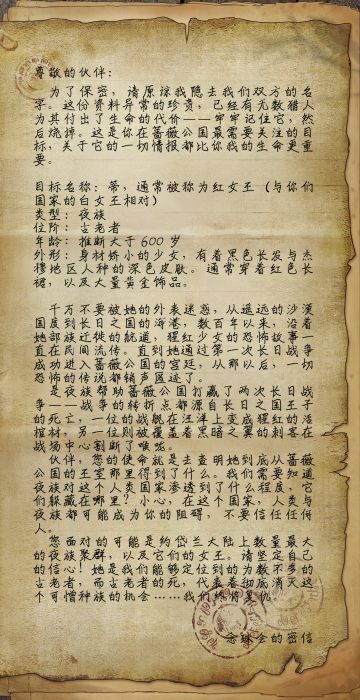 尊敬的伙伴:
为了保密,请原谅我隐去我们双方的名
字。这份资料异常的珍贵,已经有无数猎人
为其付出了生命的代价——牢牢记住它,然
后烧掉。这是你在蔷薇公国最需要关注的目
标,关于它的一切情报都比你我的生命更重
要。
目标名称:蒂,通常被称为红女王(与你们
国家的白女王相对)
类型:夜族
位阶:古老者
年龄:推断大于600岁
外形:身材娇小的少女,有着黑色长发与杰
穆地区人种的深色皮肤。通常穿着红色长
裙,以及大量黄金饰品。
千万不要被她的外表迷惑,从遥远的沙漠
国度到长日之国的海港,数百年以来,沿着
她部族迁徙的航道,猩红少女的恐怖故事一
直在民间流传。直到她通过第一次长日战争
成功进入蔷薇公国的宫廷,从那以后,一切
恐怖的传说都销声匿迹了。
是夜族帮助蔷薇公国打赢了两次长日战
争——战争的转折点都源自长日之国王子
的死亡,一位的战舰在汪洋上变成猩红的浴
棺材,另一位则被覆盖着黑暗之雾的刺客在
战场中心割断了喉咙。
伙伴,您的使命就是去查明她到底从蔷薇
公国的王室那里得到了什么。我们需要知道
夜族对这个人类国家渗透到了什么程度,它
们躲藏在哪里?小心,在这个国家,人类与
夜族都可能成为你的阻碍,不要信任任何
人。
您面对的可能是约岱兰大陆上数量最大
的夜族聚群,以及它们的女王。请坚定自己
的信心!她是我们能够定位到的为数不多的
古老者,而古老者的死,代表着彻底消灭这
个可憎种族的机会……我们终将复仇。
念珠会的密信